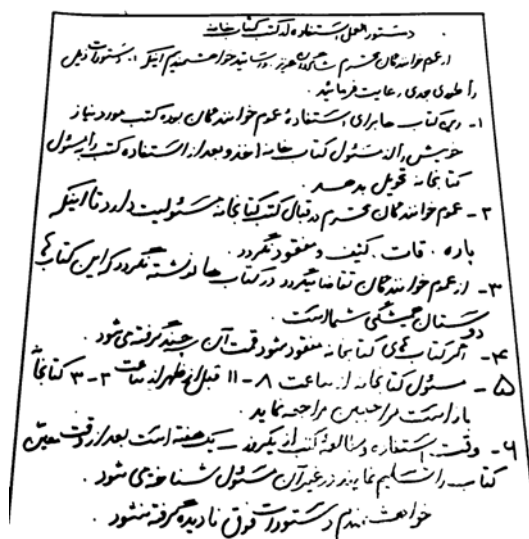 دستورالعمل استفاده از کتب کتابخانه
از عموم خوانندگان محترم شاگردان عزیز و اساتید خواهشمندیم اینکه دستورات ذیل
را بطوری جدی رعایت فرمائید.
۱- این کتاب ها برای استفادهٔ عموم خوانندگان بوده کتب مورد نیاز
خویش را از مسئول کتاب خانه اخذ و بعد از استفاده کتب را به مسئول
کتابخانه تحویل بدهد.
۲- عموم خوانندگان محترم در قبال کتب کتابخانه مسئولیت دارد تا اینکه
پاره، قات، کثیف و مفقود نگردد.
۳- از عموم خوانندگان تقاضا میگردد در کتاب ها نوشته نگردد که این کتاب ها
دوستان همیشگی شما است.
۴- اگر کتاب های کتابخانه مفقود شود قمت آن چند گرفته می شود.
۵- مسئول کتابخانه از ساعت ۸-۱۱ قبل از ظهر از ساعت ۲-۳ کتابخانه
باز است مراجعین مراجعه نماید.
۶- وقت استفاده و مطالعهٔ کتب از یکروز - یک هفته است بعد از وقت معین
کتاب را تسلیم نمایند در غیر آن مسئول شناخته می شود.
خواهشمندم دستورات فوق نادیده گرفته نشود.